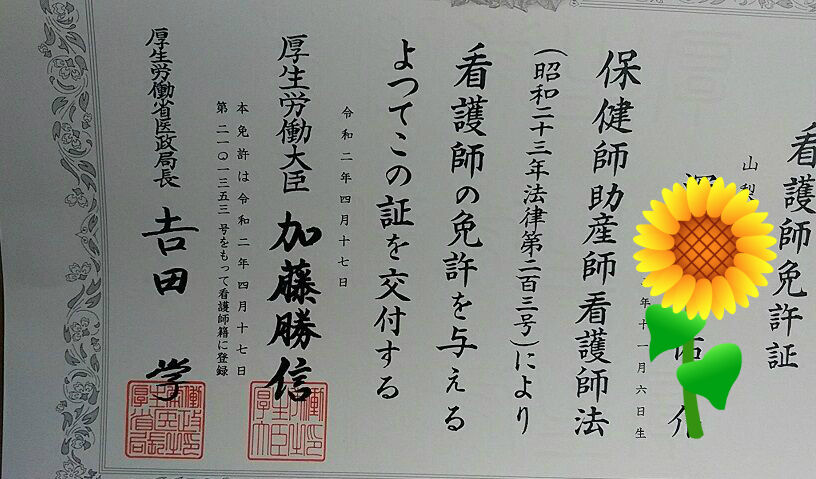 看護師免許証
山梨
年十一月六日生
保健師助産師看護師法
(昭和二十三年法律第二百三号)により
看護師の免許を与える
よつてこの証を交付する
令和二年四月十七日
厚生労働大臣 加藤勝信
本免許は令和二年四月十七日
第二一〇一三五三号をもって看護師籍に登録
厚生労働省医政局長 吉田 学